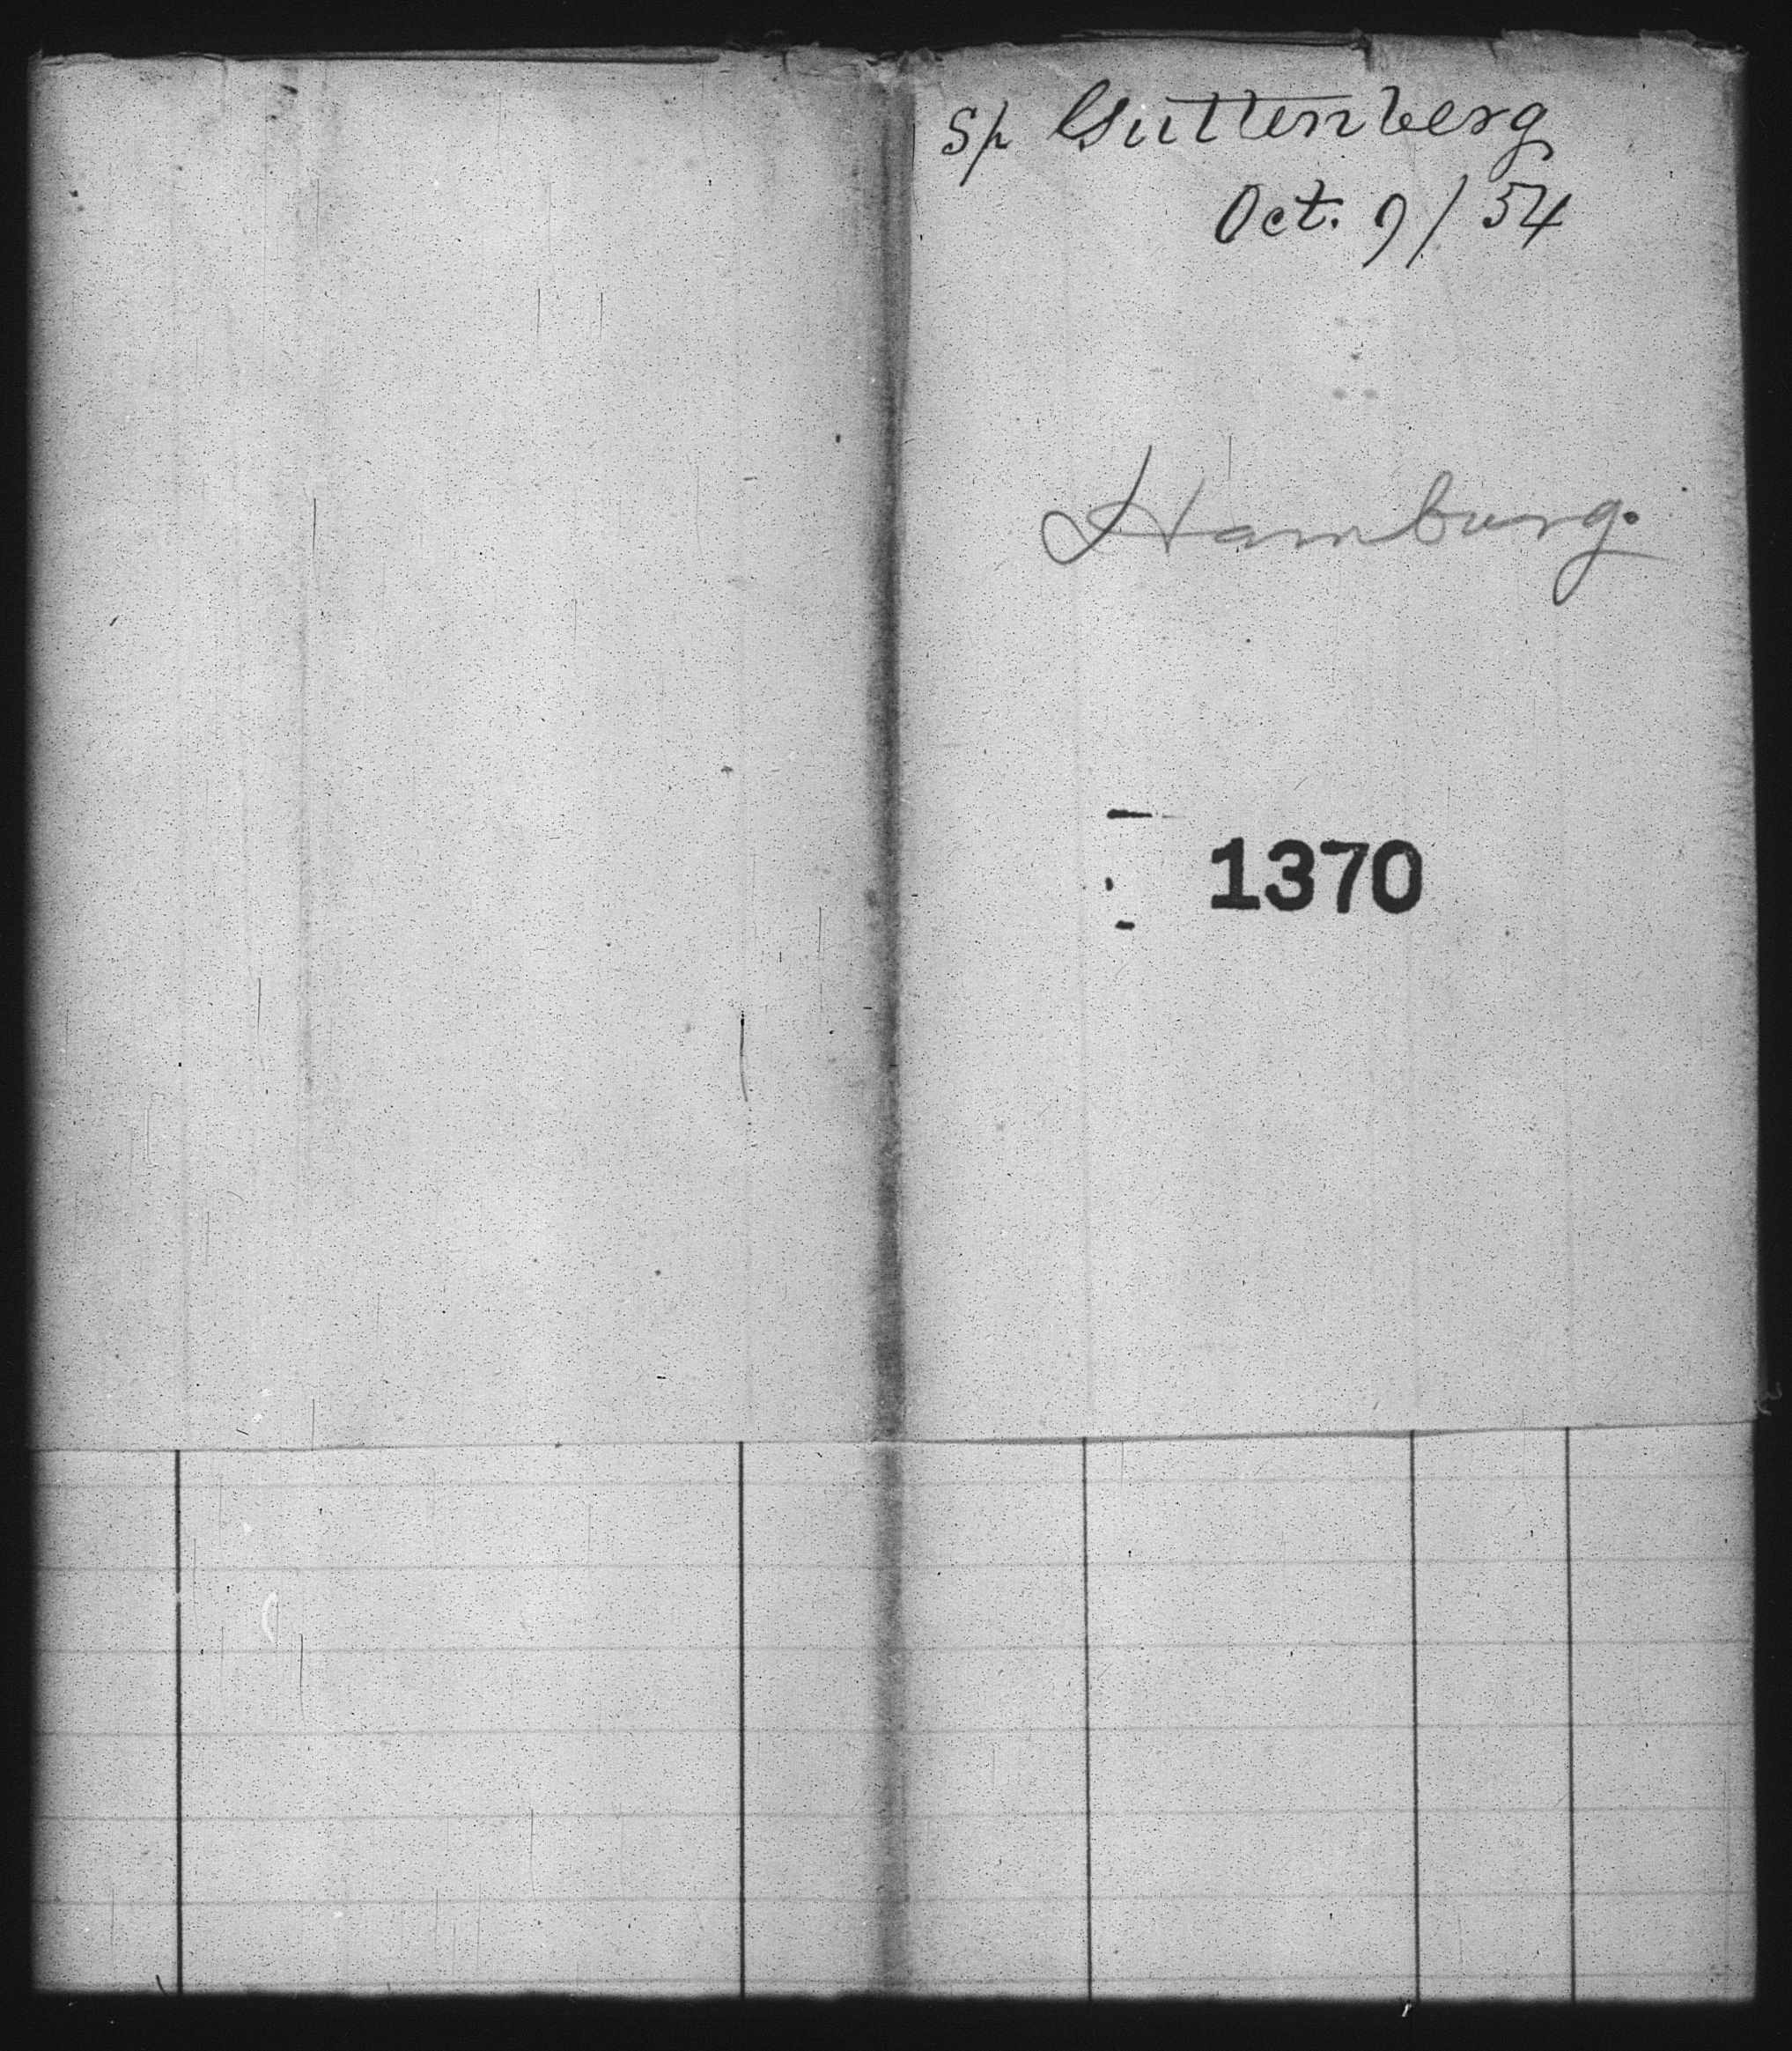 Sp Guttenberg
Oct. 9/54
Hamburg.
1370